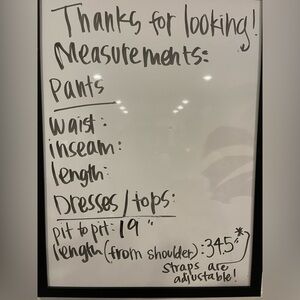 Thanks for looking!
Measurements:
Pants
waist:
inseam:
length:
Dresses/tops:
pit to pit: 19"
length (from shoulder): 34.5"*
straps are
adjustable!